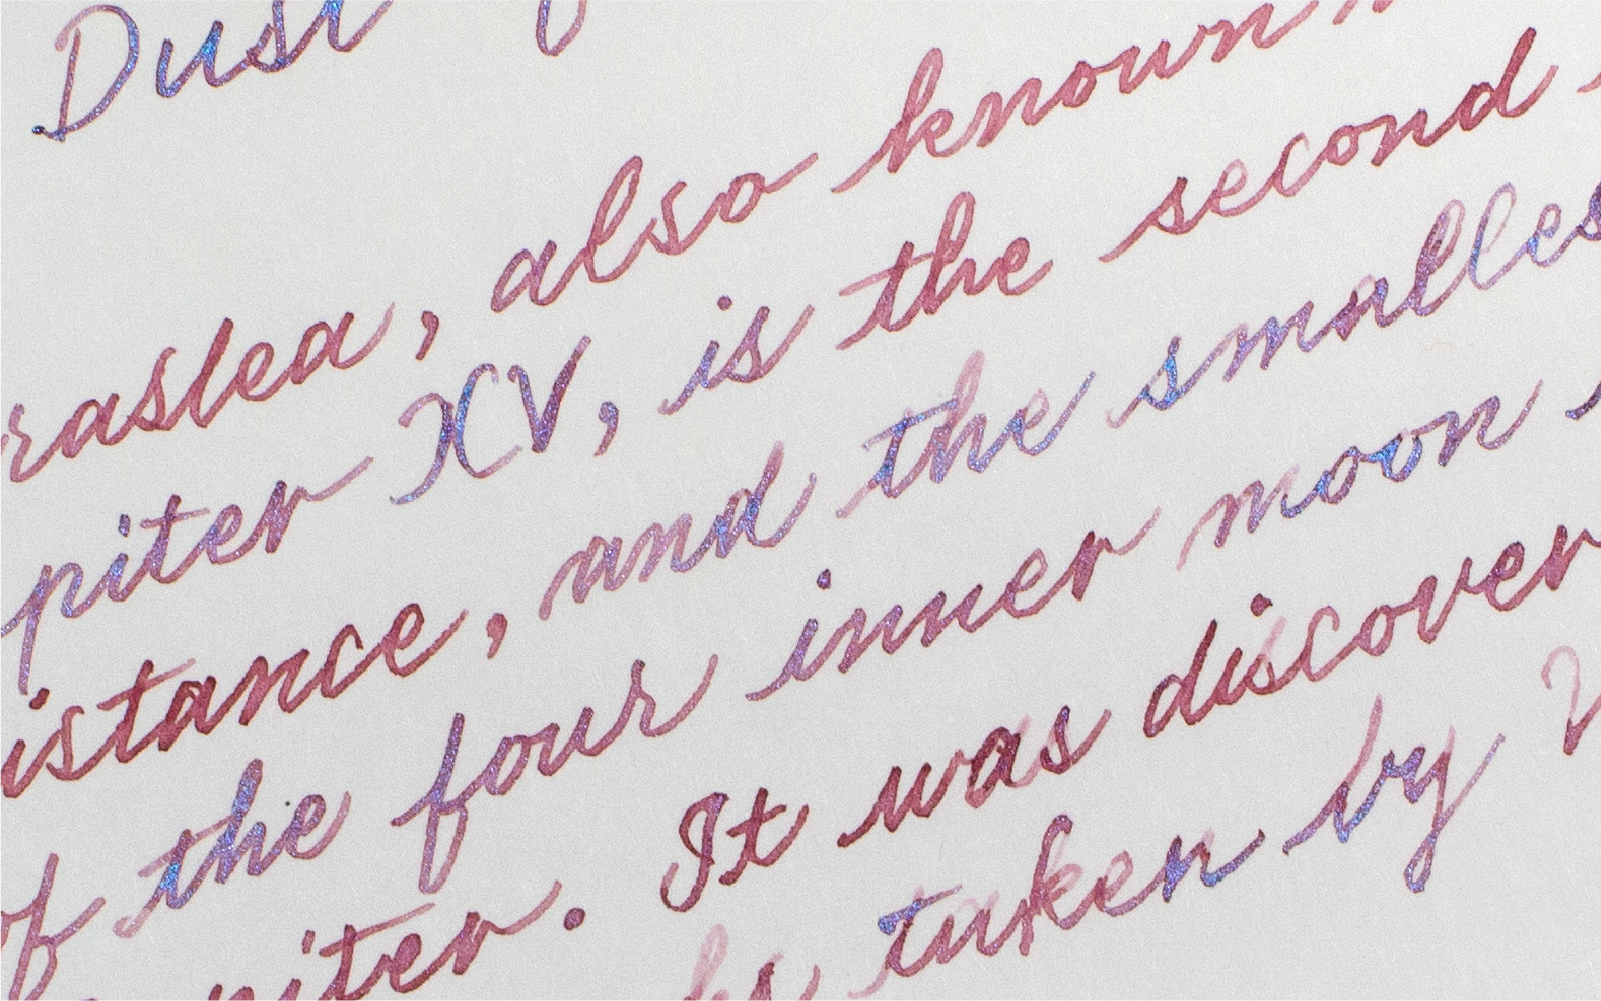 Dust
raslea, also known
piter XV, is the second
istance, and the smalles
of the four inner moon
piter. It was discover
taken by